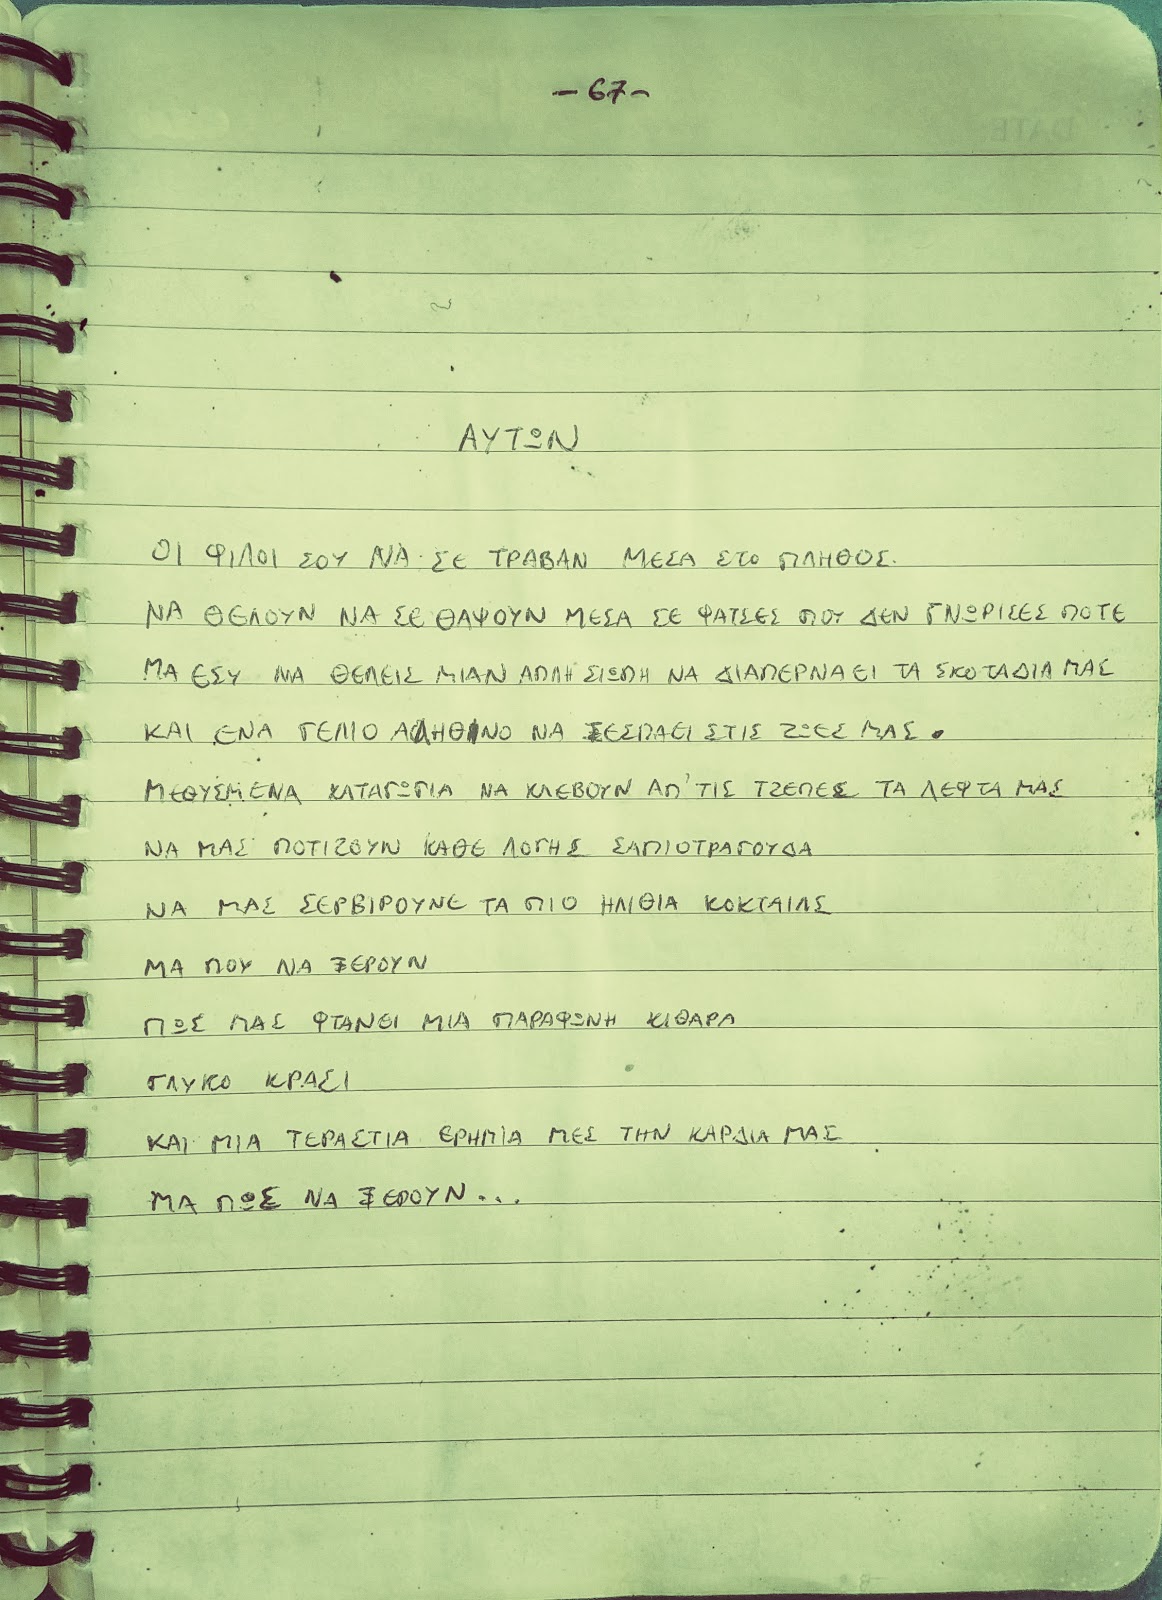 - 67 -
ΑΥΤΩΝ
ΟΙ ΦΙΛΟΙ ΣΟΥ ΝΑ ΣΕ ΤΡΑΒΑΝ ΜΕΣΑ ΣΤΟ ΠΛΗΘΟΣ.
ΝΑ ΘΕΛΟΥΝ ΝΑ ΣΕ ΘΑΨΟΥΝ ΜΕΣΑ ΣΕ ΦΑΤΣΕΣ ΠΟΥ ΔΕΝ ΓΝΩΡΙΣΕΣ ΠΟΤΕ
ΜΑ ΕΣΥ ΝΑ ΘΕΛΕΙΣ ΜΙΑΝ ΑΠΛΗ ΣΙΩΠΗ ΝΑ ΔΙΑΠΕΡΝΑΕΙ ΤΑ ΣΚΟΤΑΔΙΑ ΜΑΣ
ΚΑΙ ΕΝΑ ΓΕΛΙΟ ΑΛΗΘΙΝΟ ΝΑ ΞΕΣΠΑΕΙ ΣΤΙΣ ΖΩΕΣ ΜΑΣ.
ΜΕΘΥΣΜΕΝΑ ΚΑΤΑΓΩΓΙΑ ΝΑ ΚΛΕΒΟΥΝ ΑΠ' ΤΙΣ ΤΖΕΠΕΣ ΤΑ ΛΕΦΤΑ ΜΑΣ
ΝΑ ΜΑΣ ΠΟΤΙΖΟΥΝ ΚΑΘΕ ΛΟΓΗΣ ΣΑΠΙΟΤΡΑΓΟΥΔΑ
ΝΑ ΜΑΣ ΣΕΡΒΙΡΟΥΝΕ ΤΑ ΠΙΟ ΗΛΙΘΙΑ ΚΟΚΤΑΙΛΣ
ΜΑ ΠΟΥ ΝΑ ΞΕΡΟΥΝ
ΠΩΣ ΜΑΣ ΦΤΑΝΕΙ ΜΙΑ ΠΑΡΑΦΩΝΗ ΚΙΘΑΡΑ
ΓΛΥΚΟ ΚΡΑΣΙ
ΚΑΙ ΜΙΑ ΤΕΡΑΣΤΙΑ ΕΡΗΜΙΑ ΜΕΣ ΤΗΝ ΚΑΡΔΙΑ ΜΑΣ
ΜΑ ΠΩΣ ΝΑ ΞΕΡΟΥΝ...